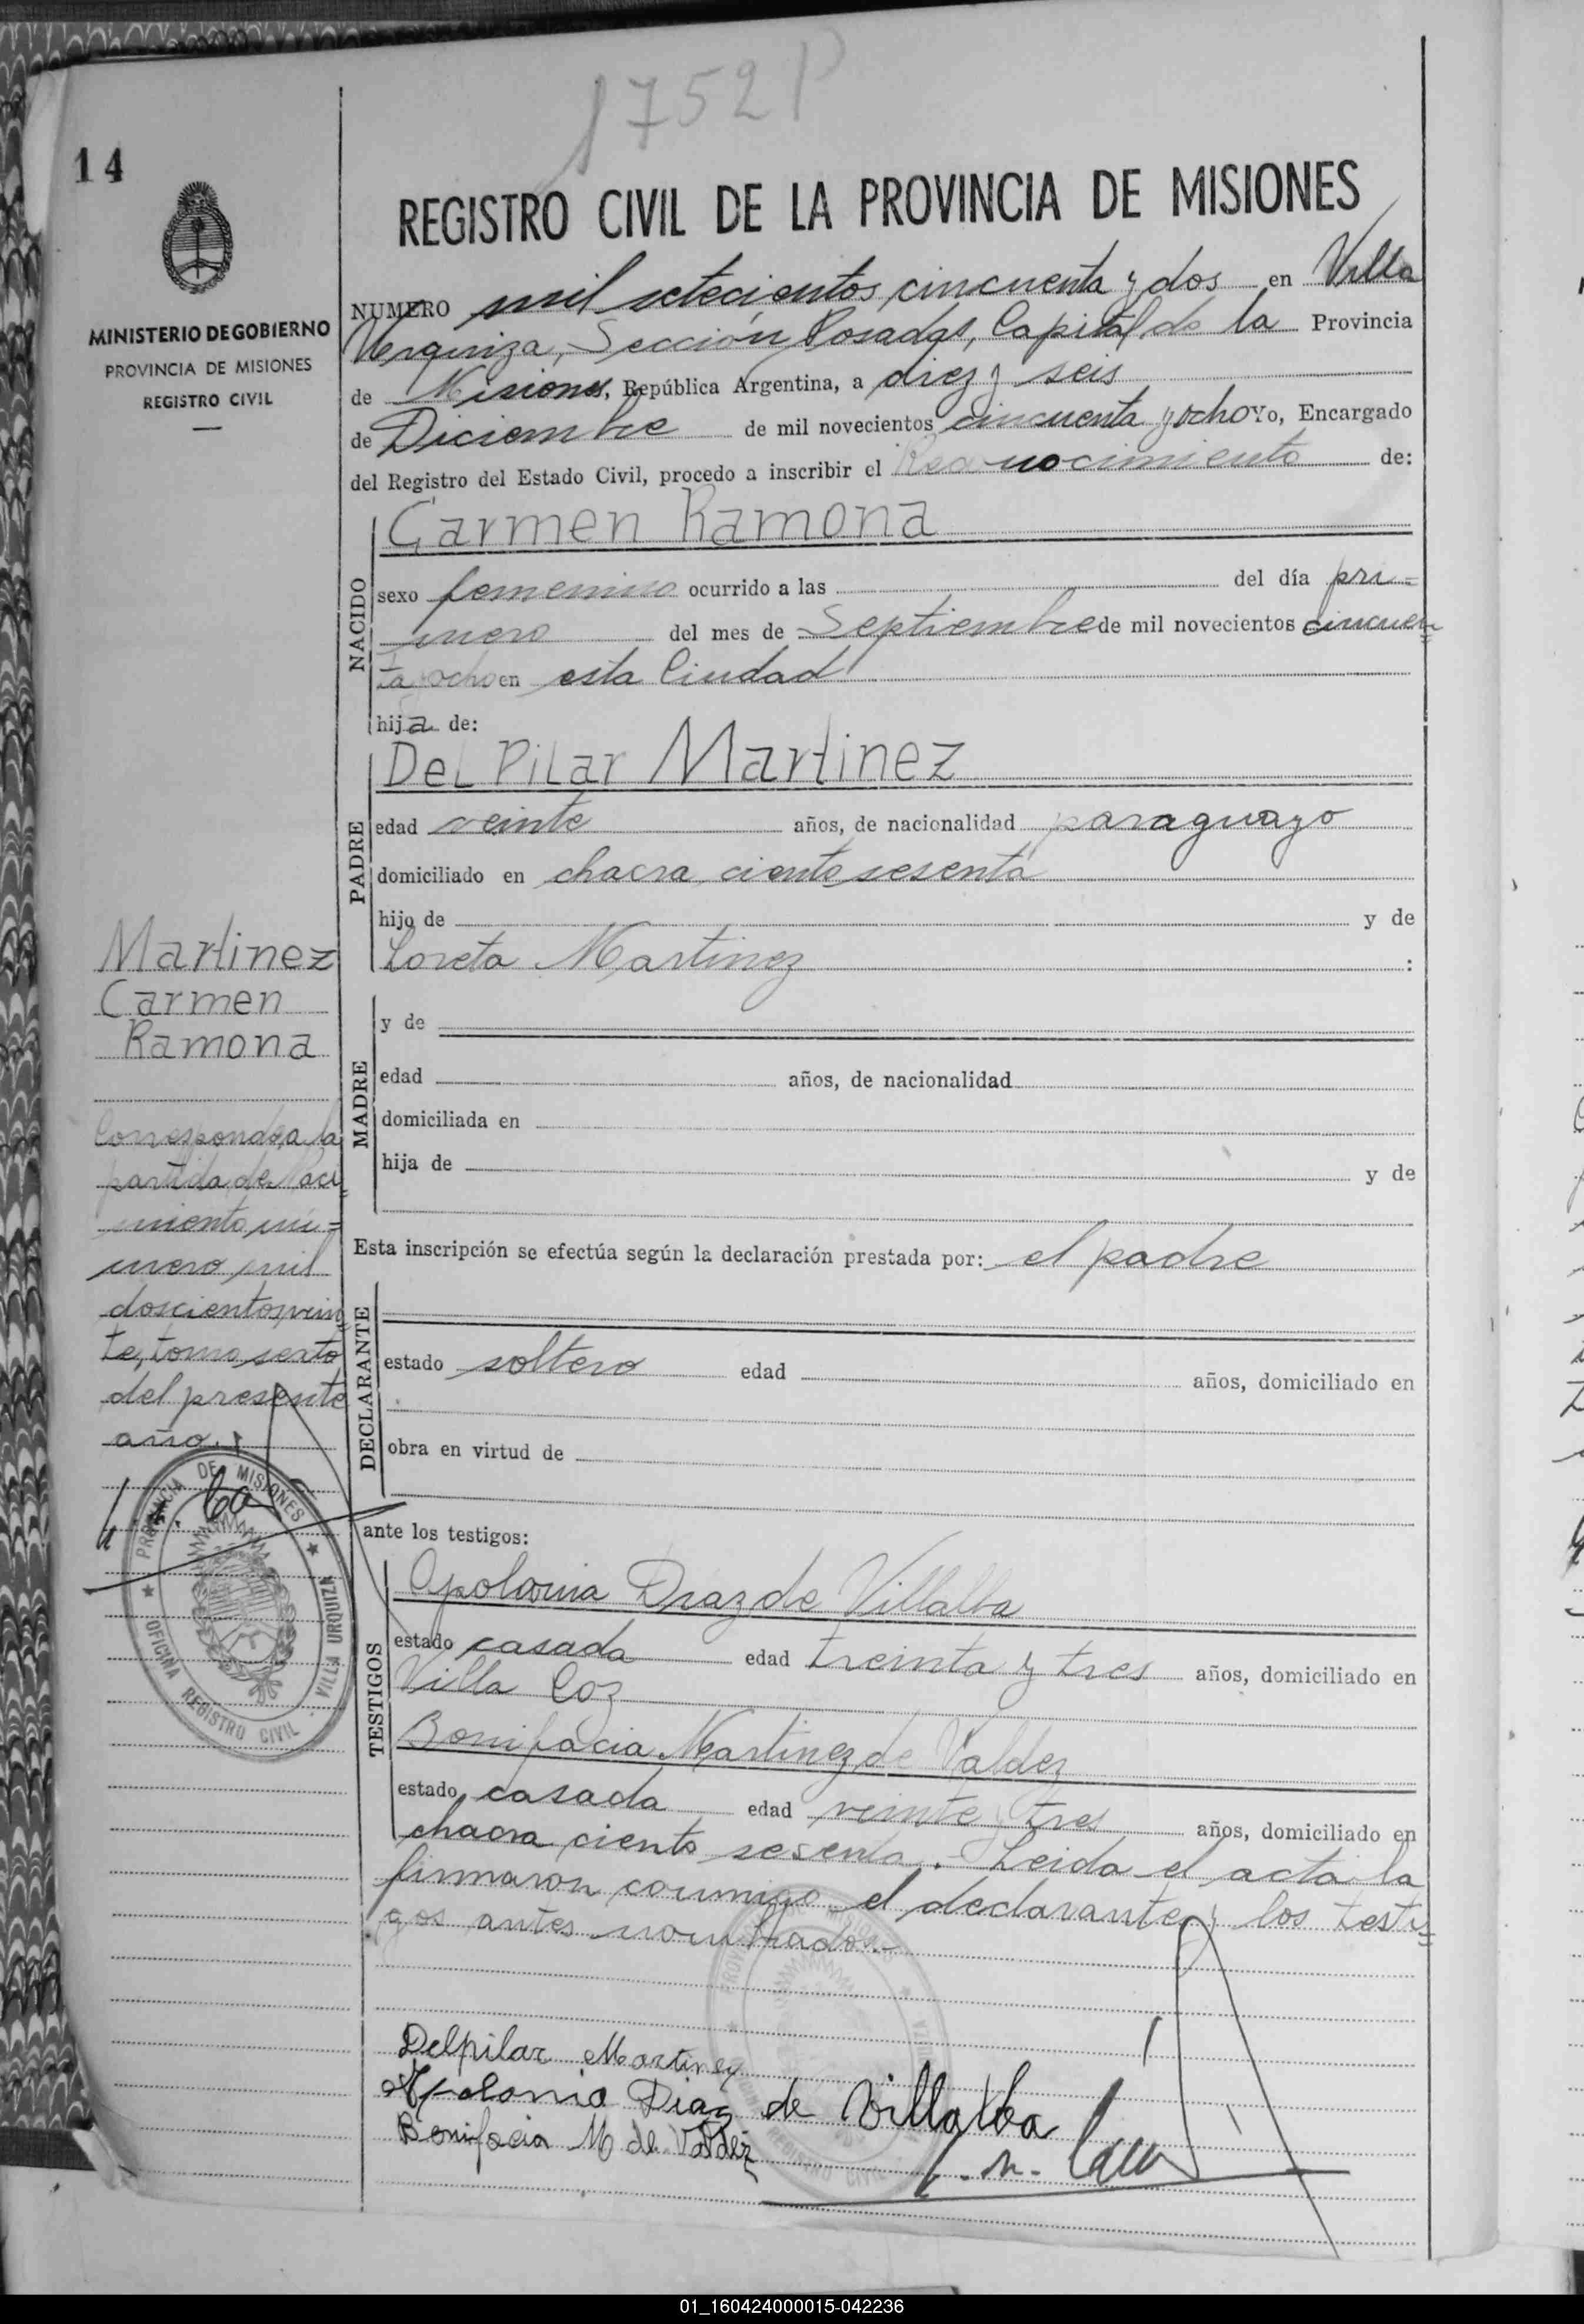 1752 P
14
REGISTRO CIVIL DE LA PROVINCIA DE MISIONES
MINISTERIO DE GOBIERNO
PROVINCIA DE MISIONES
REGISTRO CIVIL
NUMERO mil setecientos cincuenta y dos en Villa
Urquiza, Sección Posadas, Capital de la Provincia
de Misiones, República Argentina, a diez y seis
de Diciembre de mil novecientos cincuenta y ocho Yo, Encargado
del Registro del Estado Civil, procedo a inscribir el Reconocimiento de:
NACIDO
Carmen Ramona
sexo femenino ocurrido a las del día pri=
mero del mes de Septiembre de mil novecientos cincuen=
ta y ocho en esta Ciudad
hija de:
PADRE
Del Pilar Martinez
edad veinte años, de nacionalidad paraguayo
domiciliado en chacra ciento sesenta
hijo de y de
Loreta Martinez :
MADRE
y de
edad años, de nacionalidad
domiciliada en
hija de y de
Esta inscripción se efectúa según la declaración prestada por: el padre
DECLARANTE
estado soltero edad años, domiciliado en
obra en virtud de
ante los testigos:
TESTIGOS
Apolonia Diaz de Villalba
estado casada edad treinta y tres años, domiciliado en
Villa Coz
Bonifacia Martinez de Valdez
estado casada edad veinte y tres años, domiciliado en
chacra ciento sesenta.- Leida el acta la
firmaron conmigo el declarante y los testi=
gos antes nombrados.-
Delpilar Martinez
Apolonia Diaz de Villalba
Bonifacia M de Valdez
Martinez
Carmen
Ramona
Corresponde a la
partida de Naci=
miento nú=
mero mil
doscientos vein=
te, tomo sexto
del presente
año.
PROVINCIA DE MISIONES
OFICINA REGISTRO CIVIL
VILLA URQUIZA
01_160424000015-042236